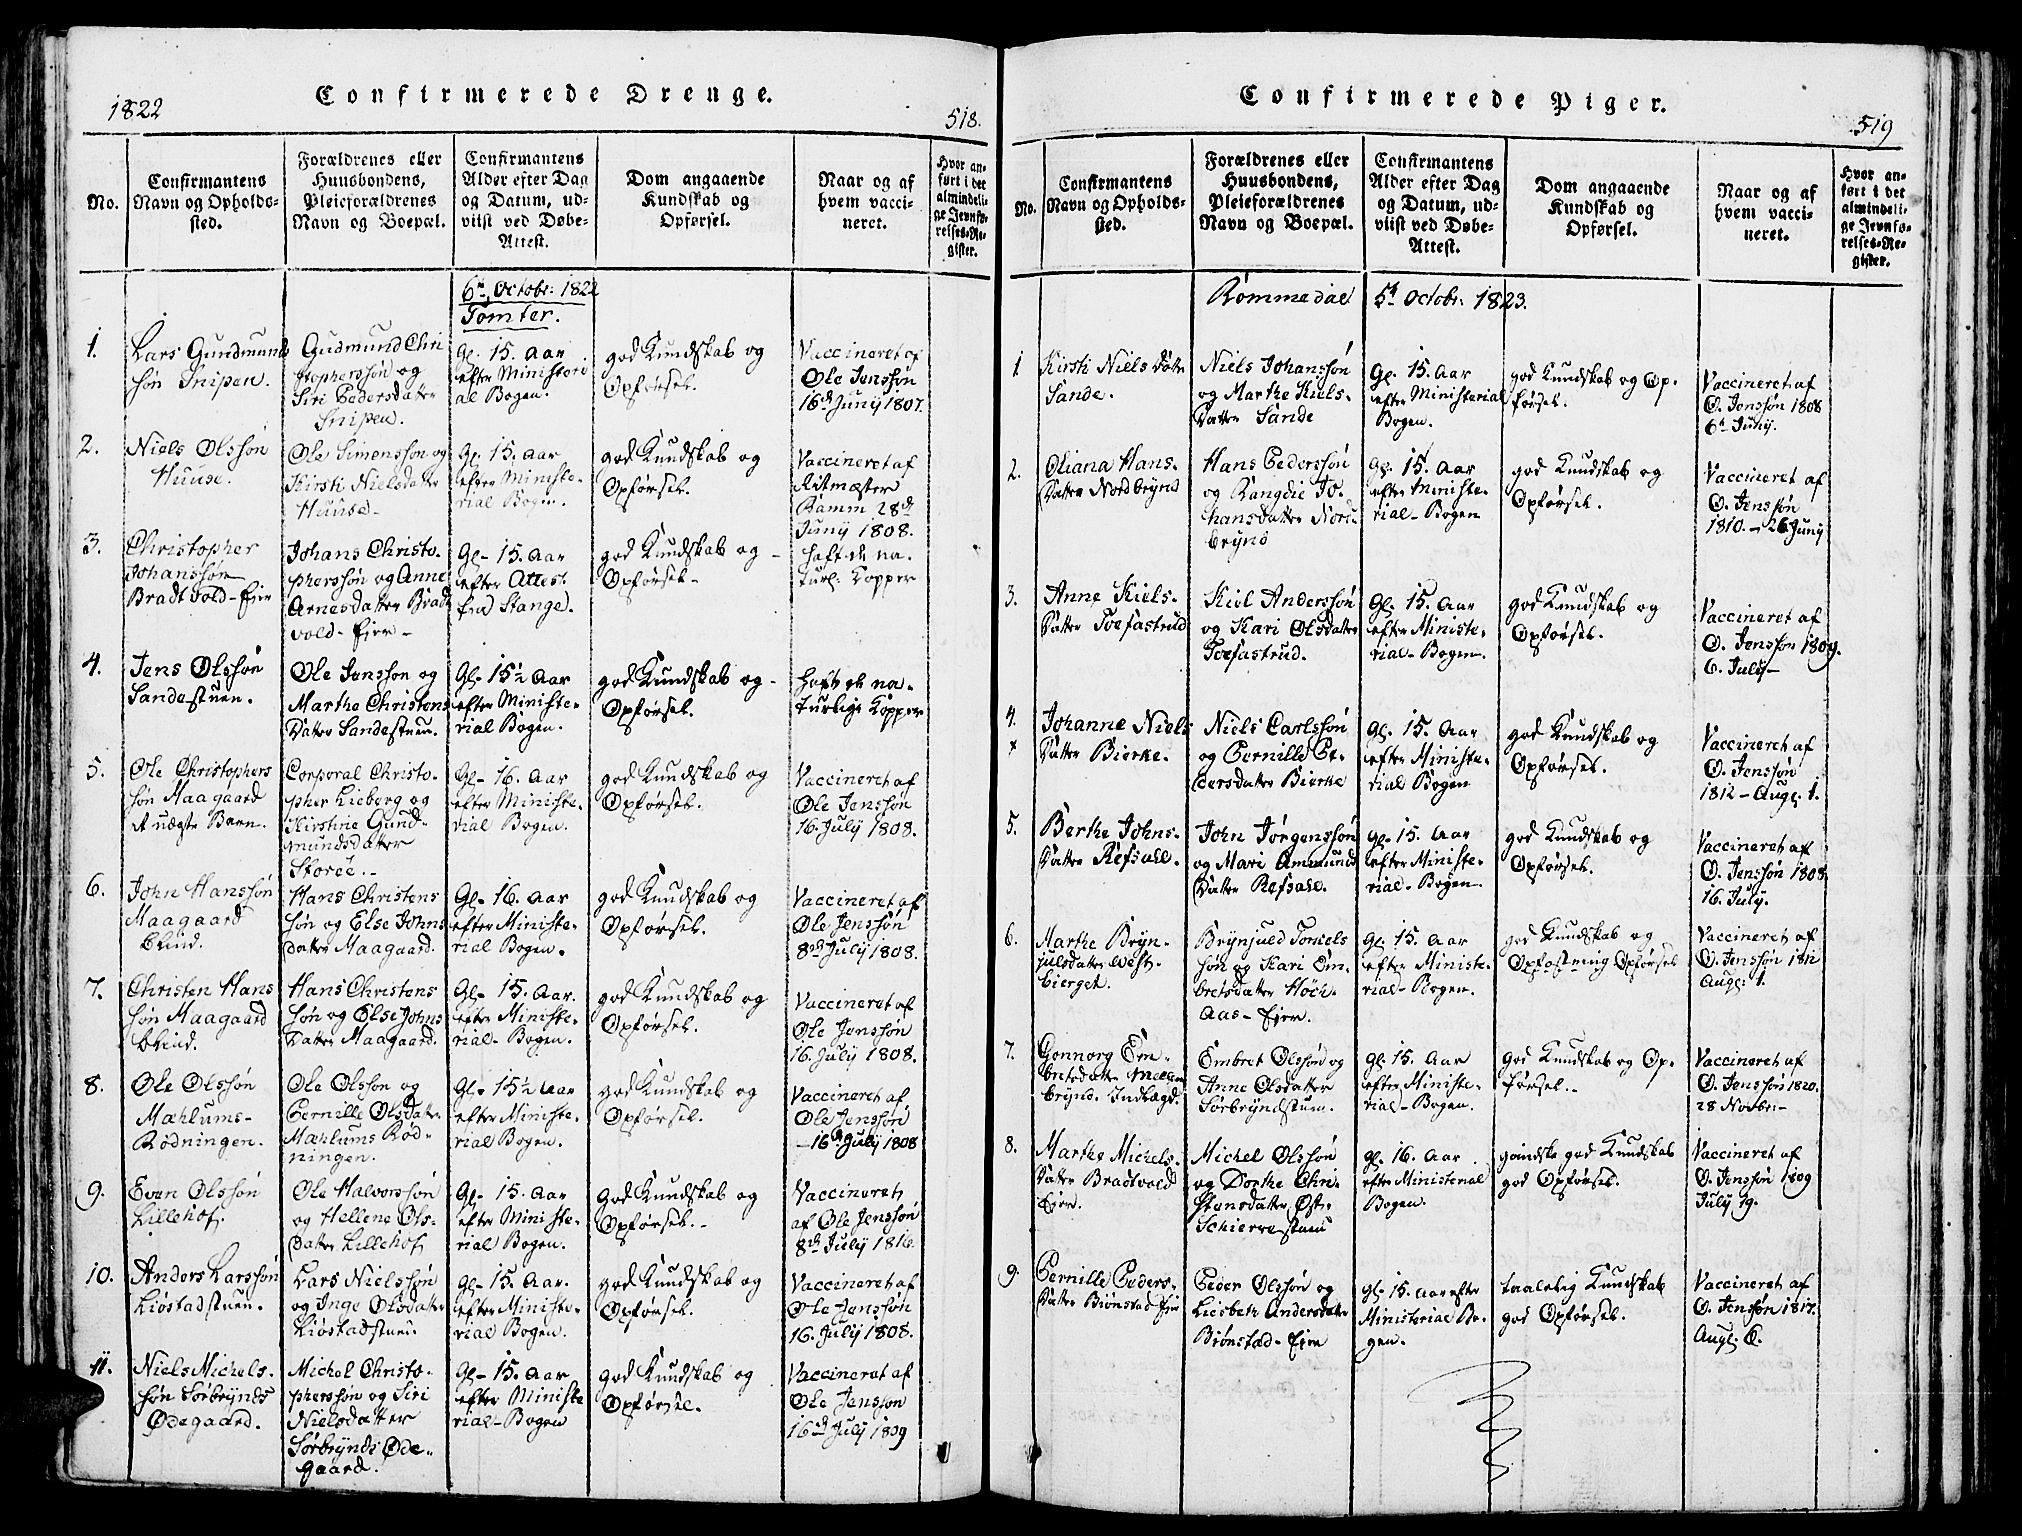 1822
Confirmerede Drenge.
518.
No.
Confirmantens
Navn og Opholds-
sted.
Forældrenes eller
Huusbondens,
Pleieforældrenes
Navn og Boepæl.
Confirmantens
Alder efter Dag
og Datum, ud-
viist ved Døbe-
Attest.
Dom angaaende
Kundskab og
Opførsel.
Naar og af
hvem vacci-
neret.
Hvor an-
ført i det
almindeli-
ge Jevnfø-
relses-Re-
gister.
6te Octobr: 1822
Tomter.
1.
Lars Gundmunds
søn Snipen.
Gudmund Chri
stopherssøn og
Siri Pedersdatter
Snipen.
Gl. 15. Aar
efter Ministeri
al Bogen.
god Kundskab og
Opførsel.
Vaccineret af
Ole Jenssøn
16de Juny 1807.
2.
Niels Olssøn
Huuse.
Ole Simenssøn og
Kirsti Nielsdatter
Huuse-
Gl. 15. Aar
efter Ministe-
rial Bogen.
god Kundskab og
Opførsel.
Vaccineret af
Ritmæster
Ramm 28de
Juny 1808.
3.
Christopher
Johanssøn
Bradtvold-Eier
Johans Christo-
pherssøn og Anne
Arnesdatter Bradt
vold-Eier-
Gl- 15. Aar
efter Attest
fra Stange.
god Kundskab og -
Opførsel-
haft de na-
turl: Kopper
4.
Jens Olssøn
Sandestuen.
Ole Jenssøn og
Marthe Christens
Datter Sandestuen.
Gl- 15½ Aar
efter Ministe-
rial Bogen.
god Kundskab og -
Opførsel.
haft de na-
turlige Kopper
5.
Ole Christophers
søn Maagaard
et uægte Barn.
Corporal Christo-
pher Lieberg og
Kirstine Gund-
mundsdatter
Storøe.-
Gl- 16. Aar
efter Ministe-
rial Bogen.
god Kundskab og
Opførsel.
Vaccineret af
Ole Jenssøn
16. July 1808.
6.
John Hanssøn
Maagaard
blind.
Hans Christens
søn og Else Johns
Datter Maagaard.
Gl- 16. Aar
efter Ministe-
rial Bogen.
god Kundskab og
Opførsel.
Vaccineret af
Ole Jenssøn
8de July 1808.
7.
Christen Hans
søn Maagaard
blind.
Hans Christens
søn og Else Johns
Datter Maagaard.
Gl- 15. Aar.
efter Ministe-
rial-Bogen.
god Kundskab og
Opførsel.
Vaccineret af
Ole Jenssøn
16. July 1808.
8.
Ole Olssøn
Mæhlums-
Rødningen.
Ole Olssøn og
Pernille Olsdatter
Mæhlums Rød-
ningen.
Gl- 15½ Aar
efter Ministe-
rial Bogen.
god Kundskab og
Opførsel.
Vaccineret af
Ole Jenssøn
-16de July 1808
9.
Even Olssøn
Lillehof.
Ole Halvorssøn
og Hellene Ols-
Datter Lillehof
Gl- 15. Aar
efter Ministe-
rial Bogen.
god Kundskab og
Opførsel.-
Vaccineret
af Ole Jenssøn
8de July 1816.
10.
Anders Larssøn
Liøstadstuen.
Lars Nielssøn
og Inge Olsdatter
Liøstadstuen.
Gl- 15. Aar.
efter Ministe-
rial Bogen.
god Kundskab og
Opførsel.
Vaccineret af
Ole Jenssøn
16. July 1808.
11.
Niels Michels-
søn Sørbrynds
Ødegaard.
Michel Christo-
pherssøn og Siri
Nielsdatter
Sørbrynds Øde-
gaard.
Gl- 15. Aar
efter Ministe
rial-Bogen
god Kundskab og
Opførsel.
Vaccineret af
Ole Jenssøn
16de July 1809
Confirmerede Piger.
519
No.
Confirmantens
Navn og Opholds-
sted.
Forældrenes eller
Huusbondens,
Pleieforældrenes
Navn og Boepæl.
Confirmantens
Alder efter Dag
og Datum, ud-
viist ved Døbe-
Attest.
Dom angaaende
Kundskab og
Opførsel.
Naar og af
hvem vacci-
neret.
Hvor an-
ført i det
almindeli-
ge Jevnfø-
relses-Re-
gister.
Rommedal 5te Octobr: 1823.
1
Kirsti Niels Datter
Sande.
Niels Johanssøn
og Marthe Kiels-
Datter Sande
Gl. 15. Aar
efter Ministerial
Bogen.
god Kundskab og Op-
førsel.
Vaccineret af
O. Jenssøn 1808
6te Juny.
2.
Oliana Hans-
Datter Nordbrynd
Hans Pederssøn
og Rangdie Jo-
hansdatter Nord-
brynd
Gl. 15. Aar
efter Ministe-
rial-Bogen
god Kundskab og
Opførsel.
Vaccineret af
O. Jenssøn
1810.-26 Juny
3.
Anne Kiels-
Datter Toefastrud
Kiel Anderssøn
og Kari Olsdatter
Toefastrud.
Gl. 15. Aar
efter Ministe-
rial-Bogen.
god Kundskab og
Opførsel.
Vaccineret af
O. Jenssøn 1809.
6. July-
4.
x
Johanne Niels
Datter Bierke.
Niels Carlssøn
og Pernille Pe-
dersdatter Bierke
Gl. 15. Aar
efter Ministe-
rial Bogen
god Kundskab og
Opførsel.
Vaccineret af
O. Jenssøn
1812-Aug: 1.
5.
Berthe Johns-
Datter Refsahl.
John Jørgenssøn
og Mari Ammund
Datter Refsahl.
Gl. 15. Aar
efter Ministe-
rial-Bogen.
god Kundskab og
Opførsel.
Vaccineret af
O. Jenssøn 1808.
16. July.
6.
Marthe Bryn-
julsdatter West-
bierget.
Brynjuld Toniels
søn og Kari Em-
bretsdatter Høch-
Aas-Eier.
Gl- 15. Aar
efter Ministe-
rial-Bogen.
god Kundskab og
Opførsel
Vaccineret af
O. Jenssøn 1811
Aug: 1.
7.
Gonnorg Em-
bretsdatter Mellem
brynd. Indlægd.
Embret Olssøn og
Anne Olsdatter
Sørbryndstuen.
Gl. 15. Aar
efter Ministe-
rial-Bogen.
god Kundskab og Op-
førsel.-
Vaccineret af
O. Jenssøn 1820.
28 Novbr:-
8.
Marthe Michels-
Datter Bradtvold
Eier.
Michel Olssøn
og Dorthe Chri-
stensdatter Øst-
Schierrestuen
Gl. 16. Aar
efter Ministerial
Bogen.
gandske god Kundskab
god Opførsel.
Vaccineret af
O. Jenssøn 1809
July 19.
9.
Pernille Peders-
Datter Biønstad Eier
Peder Olssøn og
Liesbeth Andersdatter
Biønstad-Eier
Gl- 15. Aar efter
Ministerial Bo-
gen.
taalelig Kundskab
god Opførsel.
Vaccineret af
O. Jenssøn 1817.
Aug: 6.